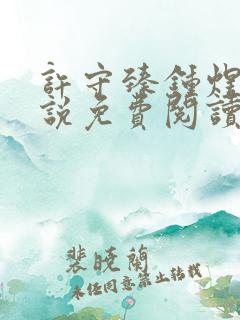 許守臻鍾煜小
說免費閱讀
裴曉蘭
未经同意禁止转载